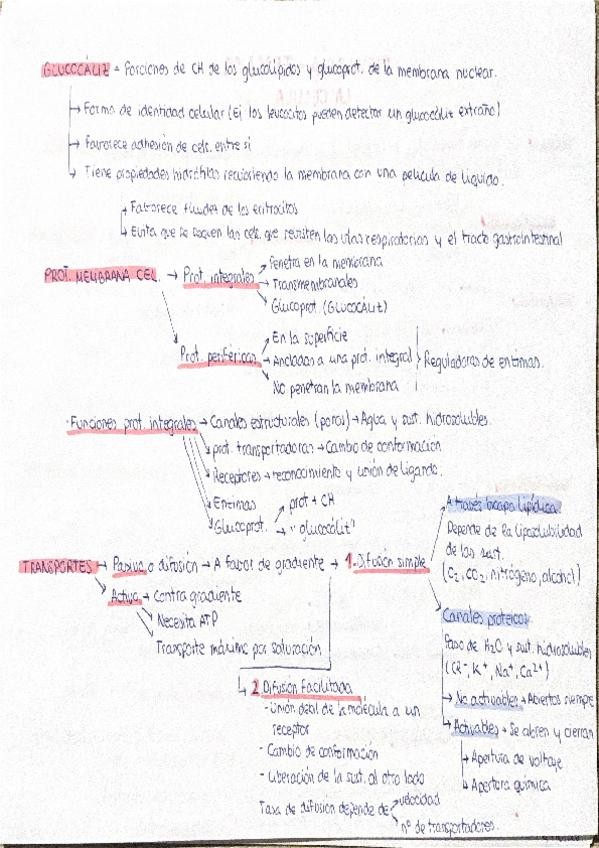 GLUCOCÁLIZ → Porciones de CH de los glucolípidos y glucoprot. de la membrana nuclear.
→ Forma de identidad celular (Ej los leucocitos pueden detectar un glucocáliz extraño)
→ Favorece adhesión de cels. entre sí
→ Tiene propiedades hidrófilas recubriendo la membrana con una película de líquido.
→ Favorece fluidez de los eritrocitos
→ Evita que se sequen las cels. que revisten las vías respiratorias y el tracto gastrointestinal
PROT. MEMBRANA CEL. → Prot. integrales → Penetra en la membrana
→ Transmembranales
→ Glucoprot. (GLUCOCÁLIZ)
→ Prot. periféricas → En la superficie
→ Ancladas a una prot. integral
→ No penetran la membrana
Reguladoras de enzimas.
· Funciones prot. integrales → Canales estructurales (poros) → Agua y sust. hidrosolubles.
→ prot. transportadoras → Cambio de conformación
→ Receptores → reconocimiento y unión de ligando.
→ Enzimas
→ Glucoprot. → prot + CH
→ "glucocáliz"
TRANSPORTES → Pasivo o difusión → A favor de gradiente → 1. Difusión simple
→ Activo → Contra gradiente
→ Necesita ATP
→ Transporte máximo por saturación
A través bicapa lipídica
Depende de la liposolubilidad
de las sust.
(O2, CO2, nitrógeno, alcohol)
Canales proteicos
Paso de H2O y sust. hidrosolubles
(Cl-, K+, Na+, Ca2+)
→ No activables → Abiertos siempre
→ Activables → Se abren y cierran
→ Apertura de voltaje
→ Apertura química
→ 2. Difusión facilitada
- Unión débil de la molécula a un
receptor
- Cambio de conformación
- Liberación de la sust. al otro lado
Tasa de difusión depende de → velocidad
→ nº de transportadores.